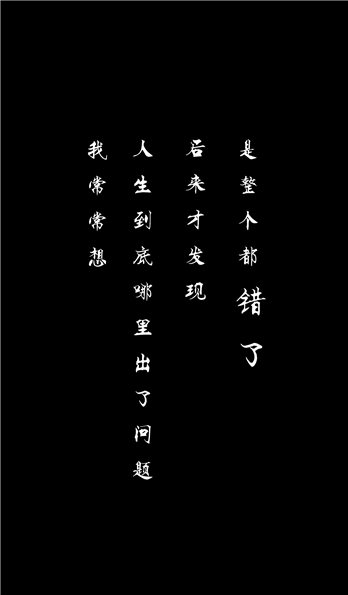 我常常想
人生到底哪里出了问题
后来才发现
是整个都错了